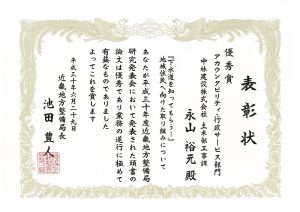 表彰状
優秀賞
アカウンタビリティ・行政サービス部門
中林建設株式会社 土木部工事課
永山 裕元 殿
『下水道を知ってもらう!』
地域住民へ向けた取り組みについて
あなたが平成三十年度近畿地方整備局
研究発表会において発表された頭書の
論文は優秀であり業務の遂行に極めて
有益なものでありました
よってこれを賞します
平成三十年六月二十九日
近畿地方整備局長
池田 豊人